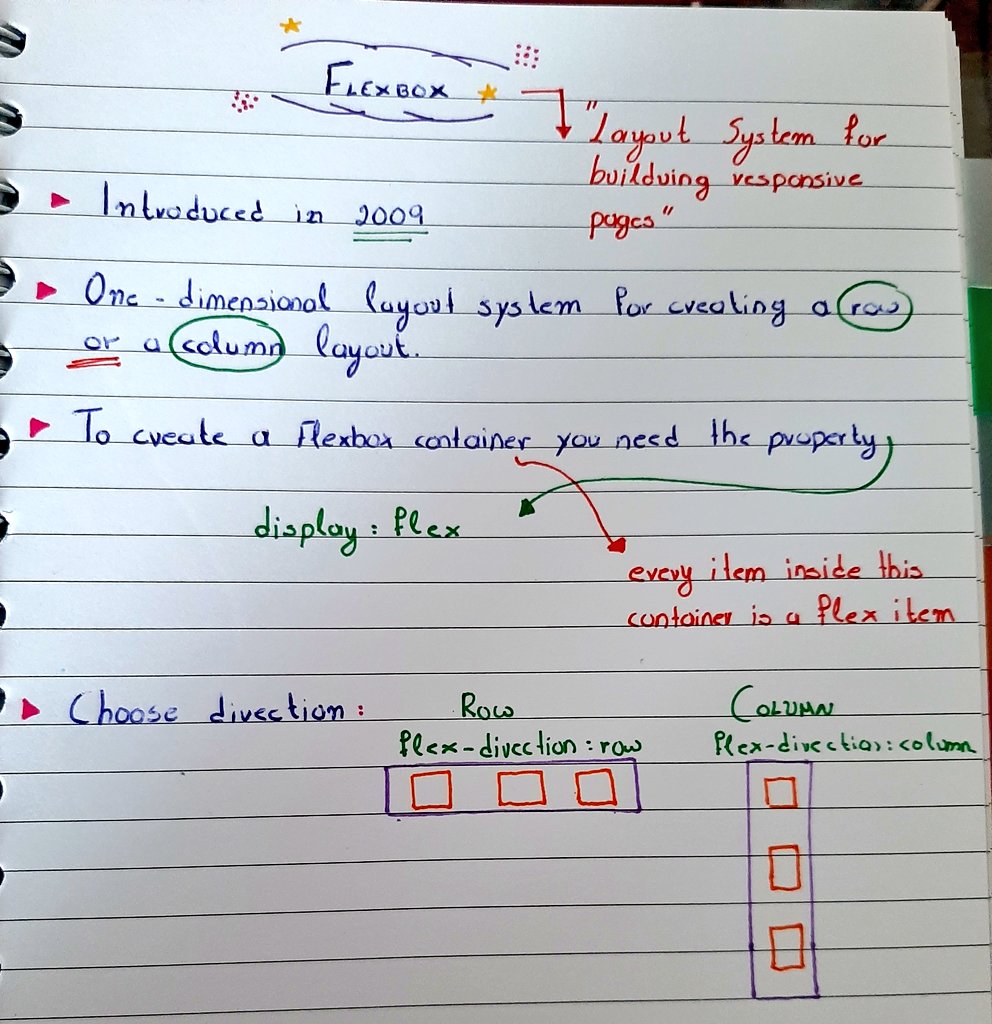 FLEXBOX
"Layout System for
builduing responsive
pages"
Introduced in 2009
One-dimensional layout system for creating a row
or a column layout.
To create a Flexbox container you need the property
display: flex
every item inside this
container is a flex item
Choose direction: Row COLUMN
flex-direction: row flex-direction: column